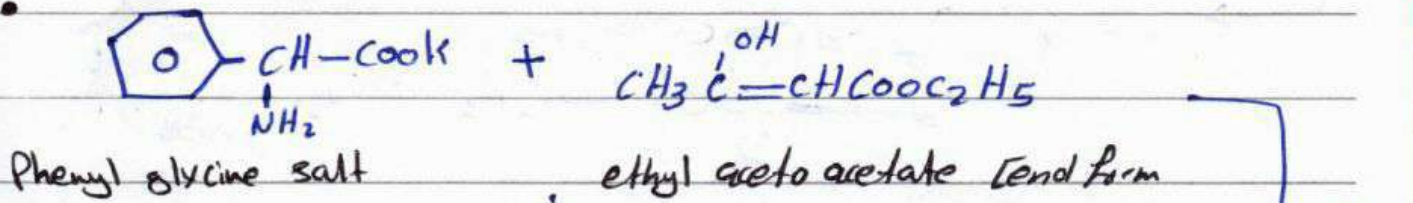 OH
CH-COOK + CH3 C=CHCOOC2H5
NH2
Phenyl glycine salt ethyl aceto acetate [enol form